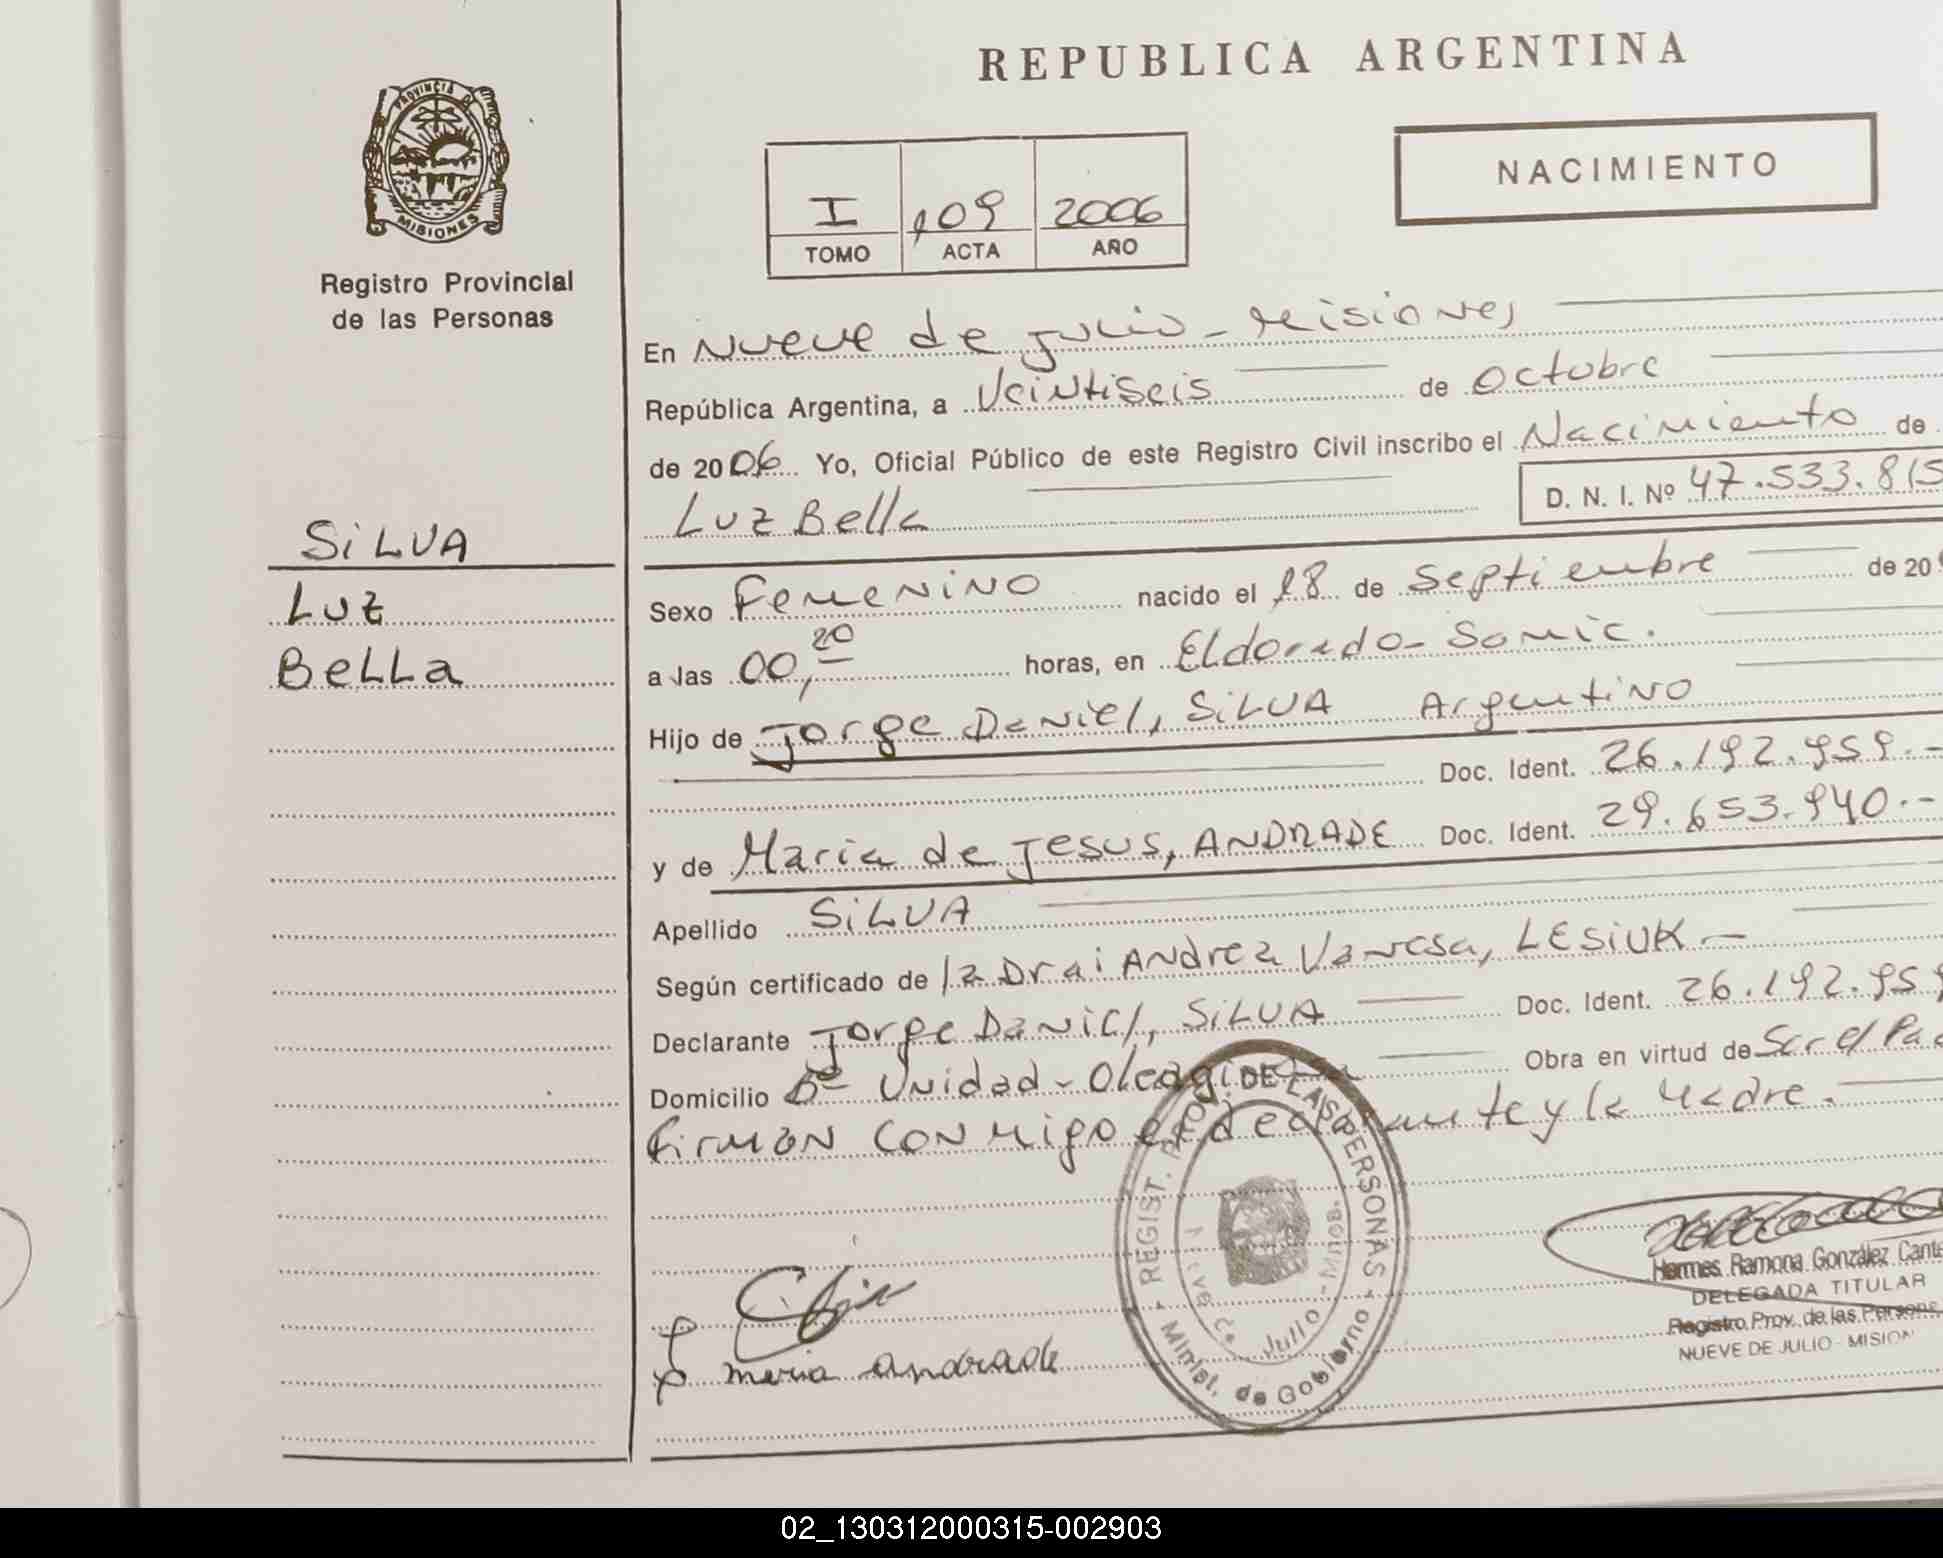 REPUBLICA ARGENTINA
PROVINCIA DE
MISIONES
Registro Provincial
de las Personas
NACIMIENTO
I 109 2006
TOMO ACTA AÑO
En Nueve de Julio - Misiones
República Argentina, a Veintiseis de Octubre
de 2006 Yo, Oficial Público de este Registro Civil inscribo el Nacimiento de
Luz Bella D. N. I. Nº 47.533.815
SILVA
Luz
Bella
Sexo Femenino nacido el 18 de Septiembre de 20
a las 00,20 horas, en Eldorado - Samic.
Hijo de Jorge Daniel, SILVA Argentino
Doc. Ident. 26.192.959.-
y de Maria de Jesus, ANDRADE Doc. Ident. 29.653.940.-
Apellido SILVA
Según certificado de la Dra: Andrea Vanesa, LESIUK -
Declarante Jorge Daniel, SILVA Doc. Ident. 26.192.959
Domicilio Unidad - Oleag Obra en virtud de Ser el Pad
Firman conmigo el declarante y la Madre.
REGIST. PROV. DE LAS PERSONAS
Minist. de Gobierno
Julio - Mnes.
Maria Andrade
Hermes Ramona González Cant
DELEGADA TITULAR
Registro Prov. de las Persona
NUEVE DE JULIO - MISION
02_130312000315-002903